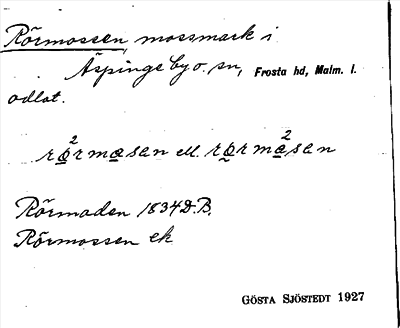 Rörmossen, mossmark i
Äspinge by o. sn, Frosta hd, Malm. l.
odlat.
Rörmaden 1834 D.B.
Rörmossen ek
GÖSTA SJÖSTEDT 1927